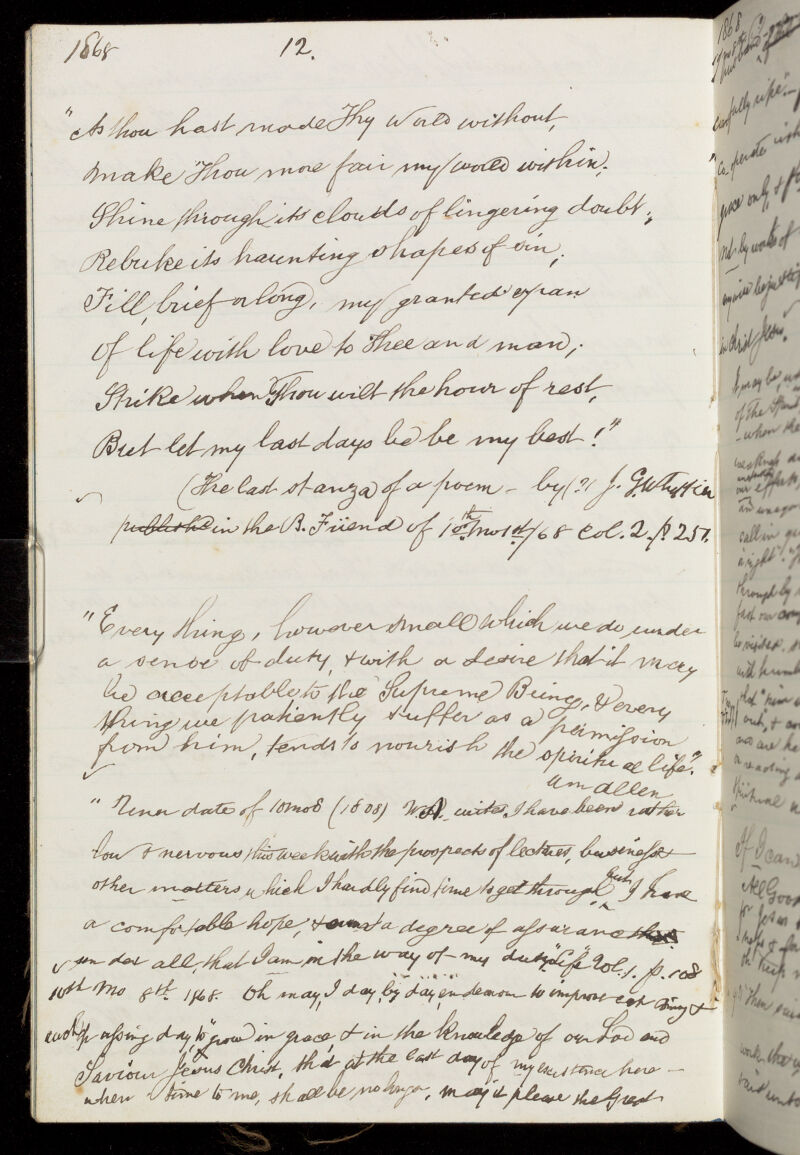 1868 12.
"As thou hast made Thy World without,
Make Thou more fair my world within;
Shine through its clouds of lingering doubt;
Rebuke its haunting shapes of sin;
Fill, brief or long, my granted span
Of life with love to Thee and man;
Strike when Thou wilt the hour of rest,
But let my last days be be my best!"
(The last stanza) of a poem - by (?) J. G. Whittier
publishd in the B. Friend of 10th mo 1st /68 Col. 2. p. 251.
"Every thing, however small which we do under
a sense of duty, & with a desire that it may
be acceptable to the Supreme Being, & every
thing we patiently suffer as a permission
from him, tends to nourish the spiritual life".
Wm Allen
"Under date of 10 mo 8 (1808) W.A. writes, I have been rather
low & nervous this week with the prospects of lectures, business &
other matters which I hardly find time to get through, but I have
a comfortable hope, & a degree of assurance
under all, that I am in the way of my duty" "Life" Vol. 1. p. 108
10th Mo 8th. 1868. Oh may, I day, by day, endeavour to improve &
each passing day to "grow in grace, & in the knowledge of our Lord and
Saviour Jesus Christ, that at the last day of my existence here -
when time to me, shall be no longer, may it please the Great
1868
carefully ripe".
Co operate with
grace only, &
not by works of
in Christ Jesus.
It may be,
of the
- when the
our efforts,
call in
a right".
through by
be visited.
with humble
that "him
out, & 
and are
a reading
spiritual
If I can
All Good
for Jesus